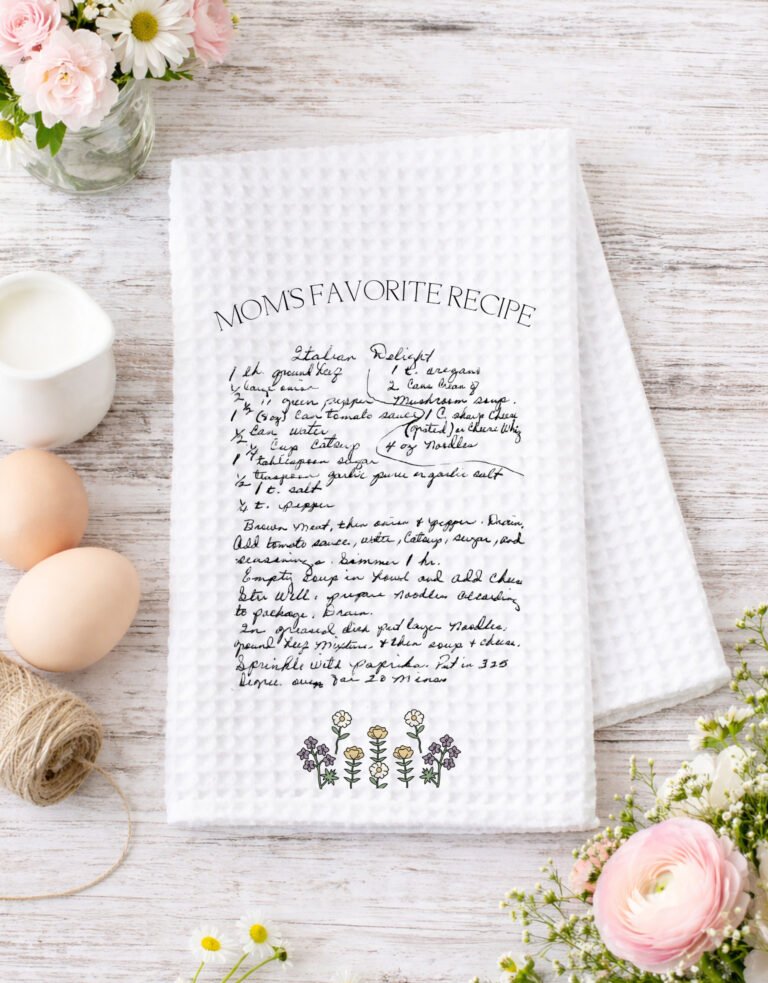 MOM'S FAVORITE RECIPE
Italian Delight
1 lb. ground beef
½ large onion
½ green pepper
1 ½ (8oz) can tomato sauce
½ can water
¼ cup catsup
1 tablespoon sugar
½ teaspoon garlic puree or garlic salt
1 t. salt
¼ t. pepper
1 t. oregano
2 cans cream of
Mushroom soup.
1 C. sharp cheese
(grated) or cheese whiz
4 oz noodles
Brown meat, then onion & pepper. Drain.
Add tomato sauce, water, catsup, sugar, and
seasonings. Simmer 1 hr.
Empty soup in bowl and add cheese
Stir well. prepare noodles according
to package. Drain.
In greased dish put layer noodles,
ground beef mixture, & then soup & cheese.
Sprinkle with paprika. Put in 325
degree oven for 20